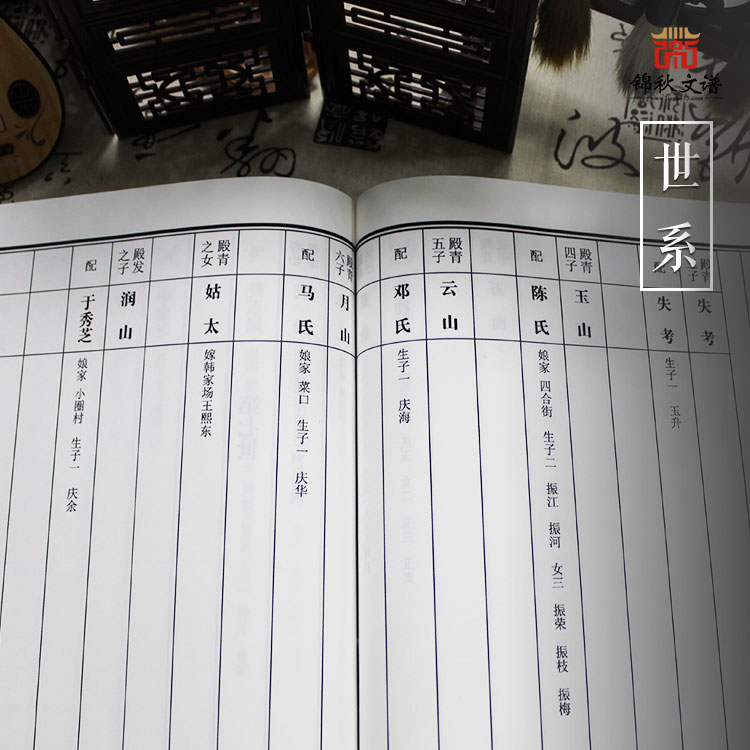 锦秋文谱
世系
殿青
子
失考
失考
生子一 玉升
殿青
四子
玉山
配
陈氏
娘家 四合街 生子二 振江 振河 女三 振荣 振枝 振梅
殿青
五子
云山
配
邓氏
生子一 庆海
殿青
六子
月山
配
马氏
娘家 菜口 生子一 庆华
殿青
之女
姑太
嫁韩家场王熙东
殿发
之子
润山
配
于秀芝
娘家 小圈村 生子一 庆余